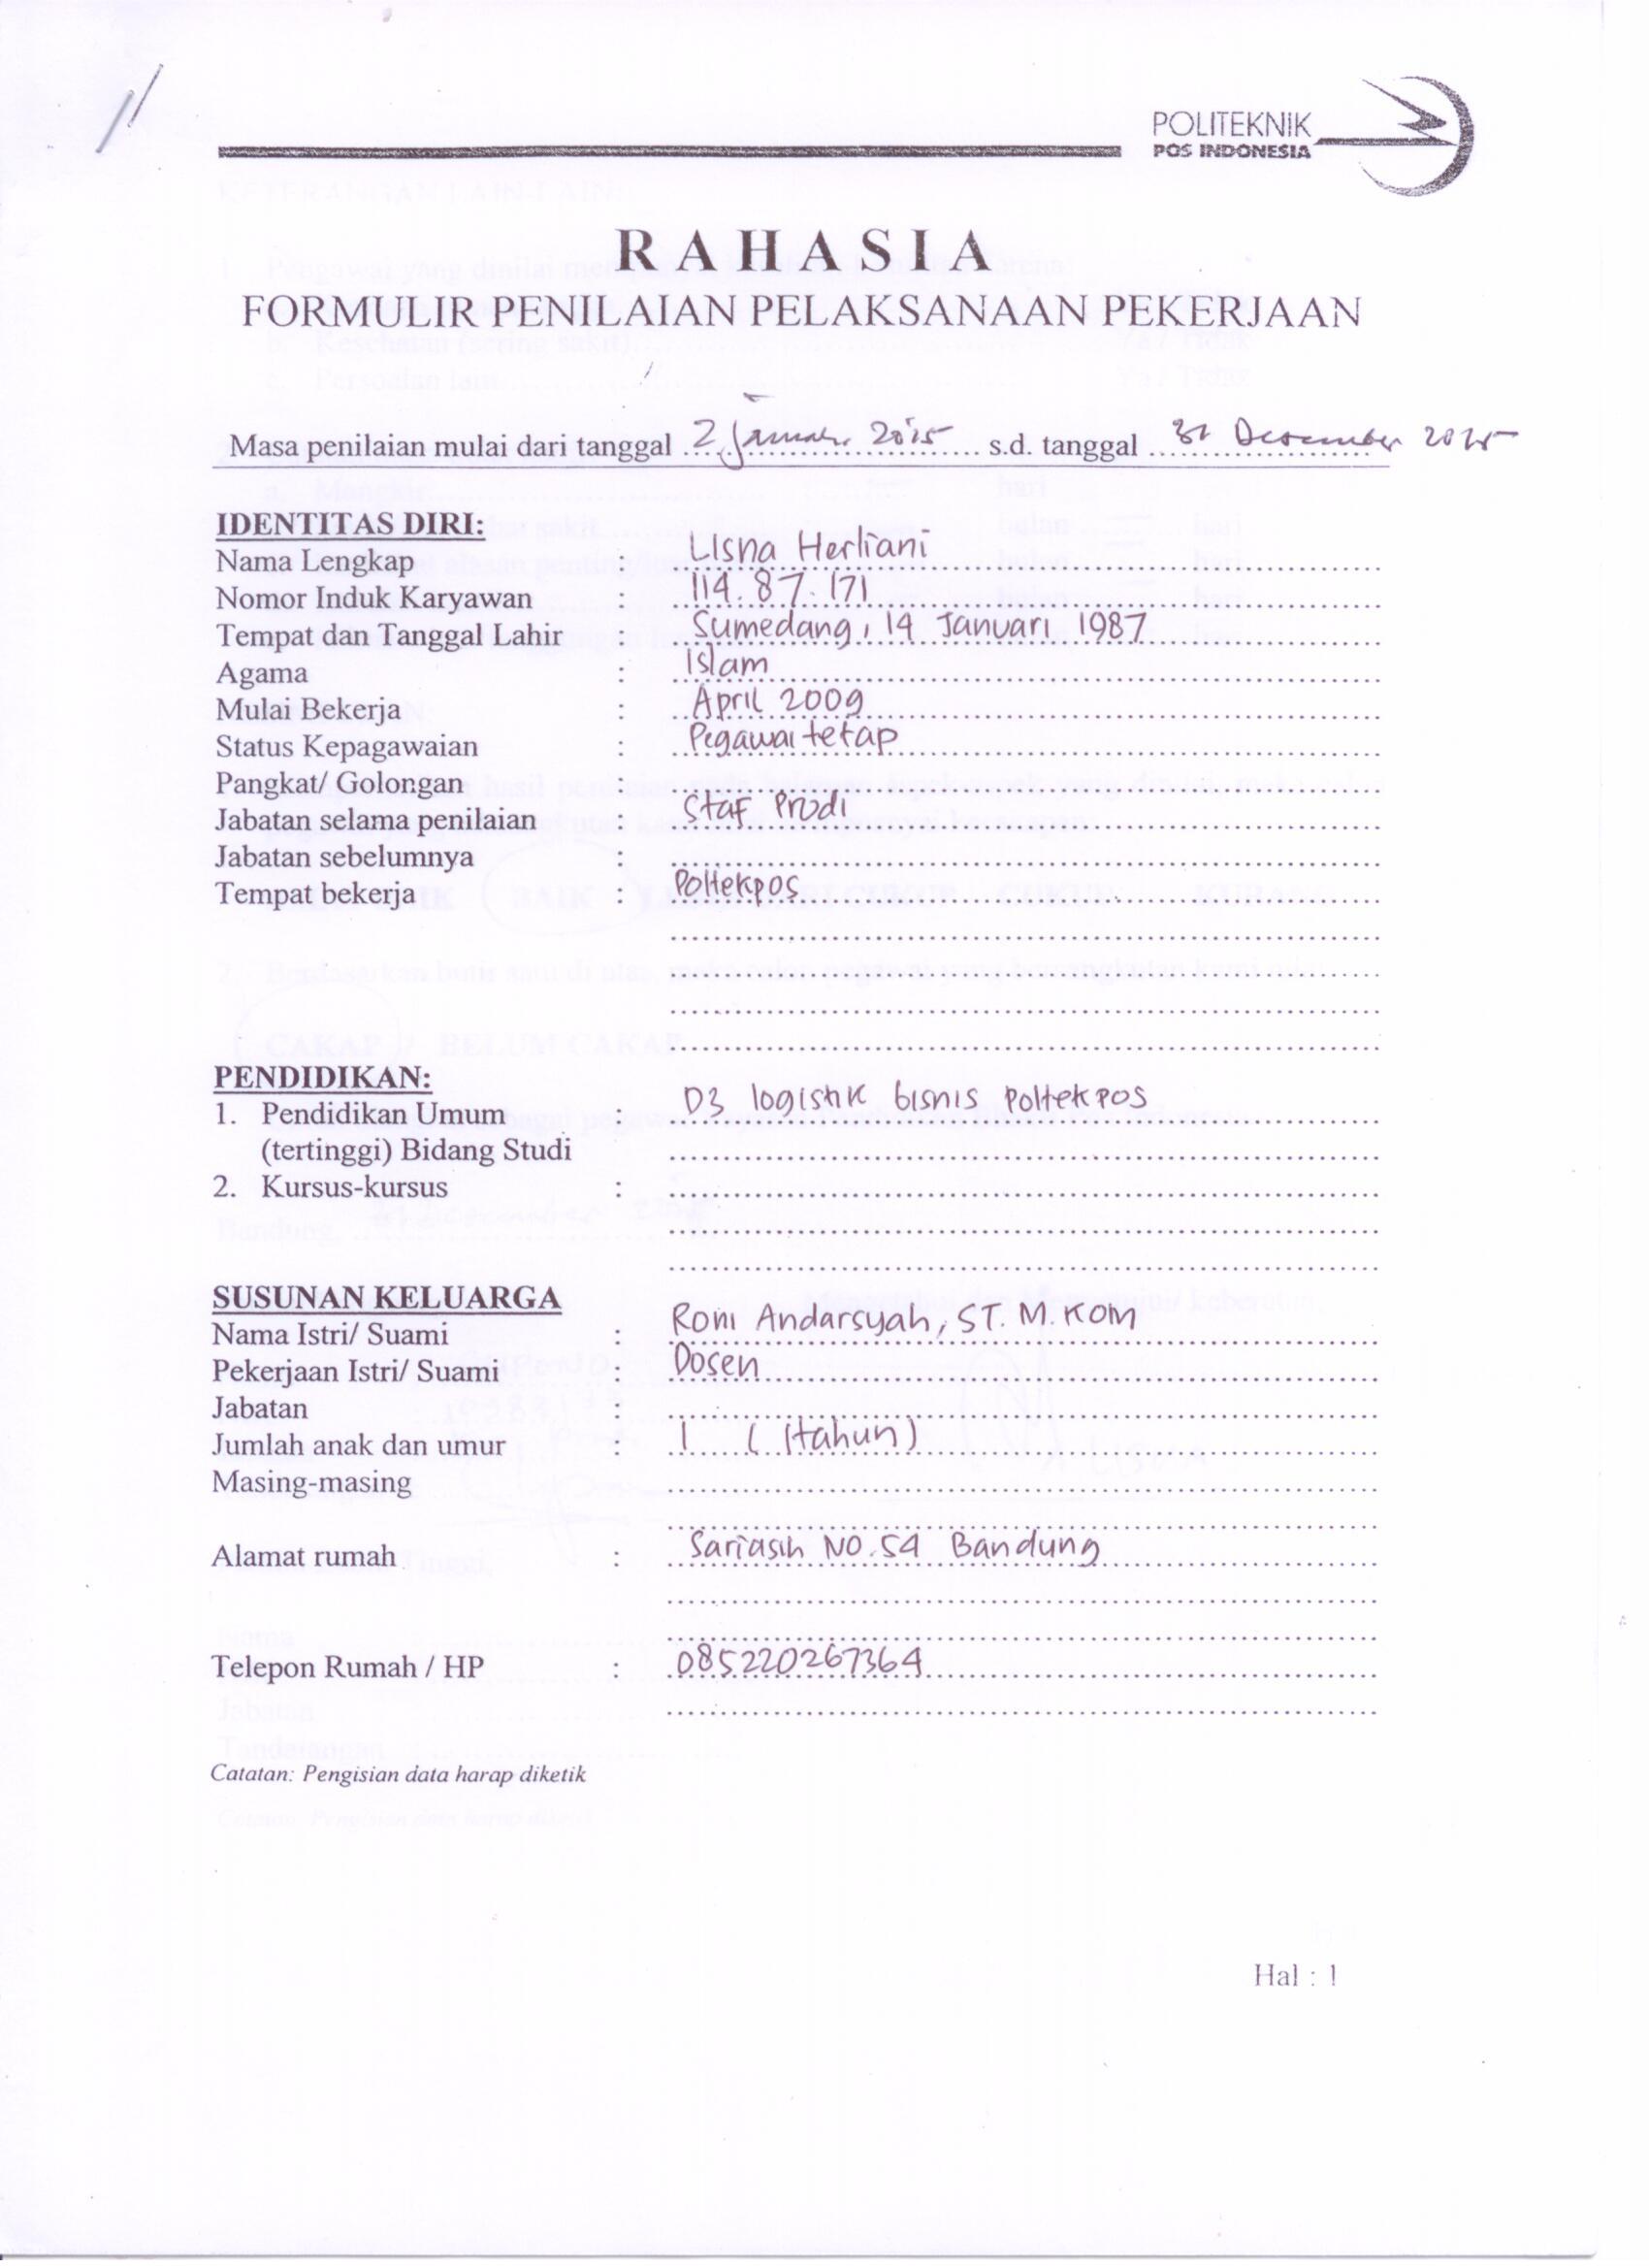 POLITEKNIK
POS INDONESIA
RAHASIA
FORMULIR PENILAIAN PELAKSANAAN PEKERJAAN
Masa penilaian mulai dari tanggal 2 Januari 2015 s.d. tanggal 31 Desember 2015
IDENTITAS DIRI:
Nama Lengkap : Lisna Herliani
Nomor Induk Karyawan : 114.87.171
Tempat dan Tanggal Lahir : Sumedang, 14 Januari 1987
Agama : Islam
Mulai Bekerja : April 2009
Status Kepagawaian : Pegawai tetap
Pangkat/ Golongan :
Jabatan selama penilaian : Staf Prodi
Jabatan sebelumnya :
Tempat bekerja : Poltekpos
PENDIDIKAN:
1. Pendidikan Umum : D3 logistik bisnis poltekpos
(tertinggi) Bidang Studi
2. Kursus-kursus :
SUSUNAN KELUARGA
Nama Istri/ Suami : Roni Andarsyah, ST. M.KOM
Pekerjaan Istri/ Suami : Dosen
Jabatan :
Jumlah anak dan umur : 1 (1tahun)
Masing-masing
Alamat rumah : Sariasih NO.54 Bandung
Telepon Rumah / HP : 085220267364
Catatan: Pengisian data harap diketik
Hal : 1